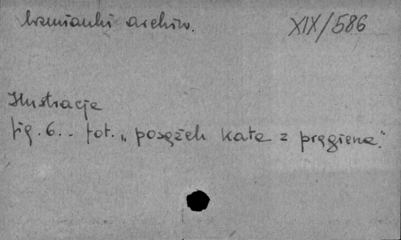 Wzmianki archiw. XIX/586
Ilustracje
fig. 6.. fot. „posążek kata z pręgierza."